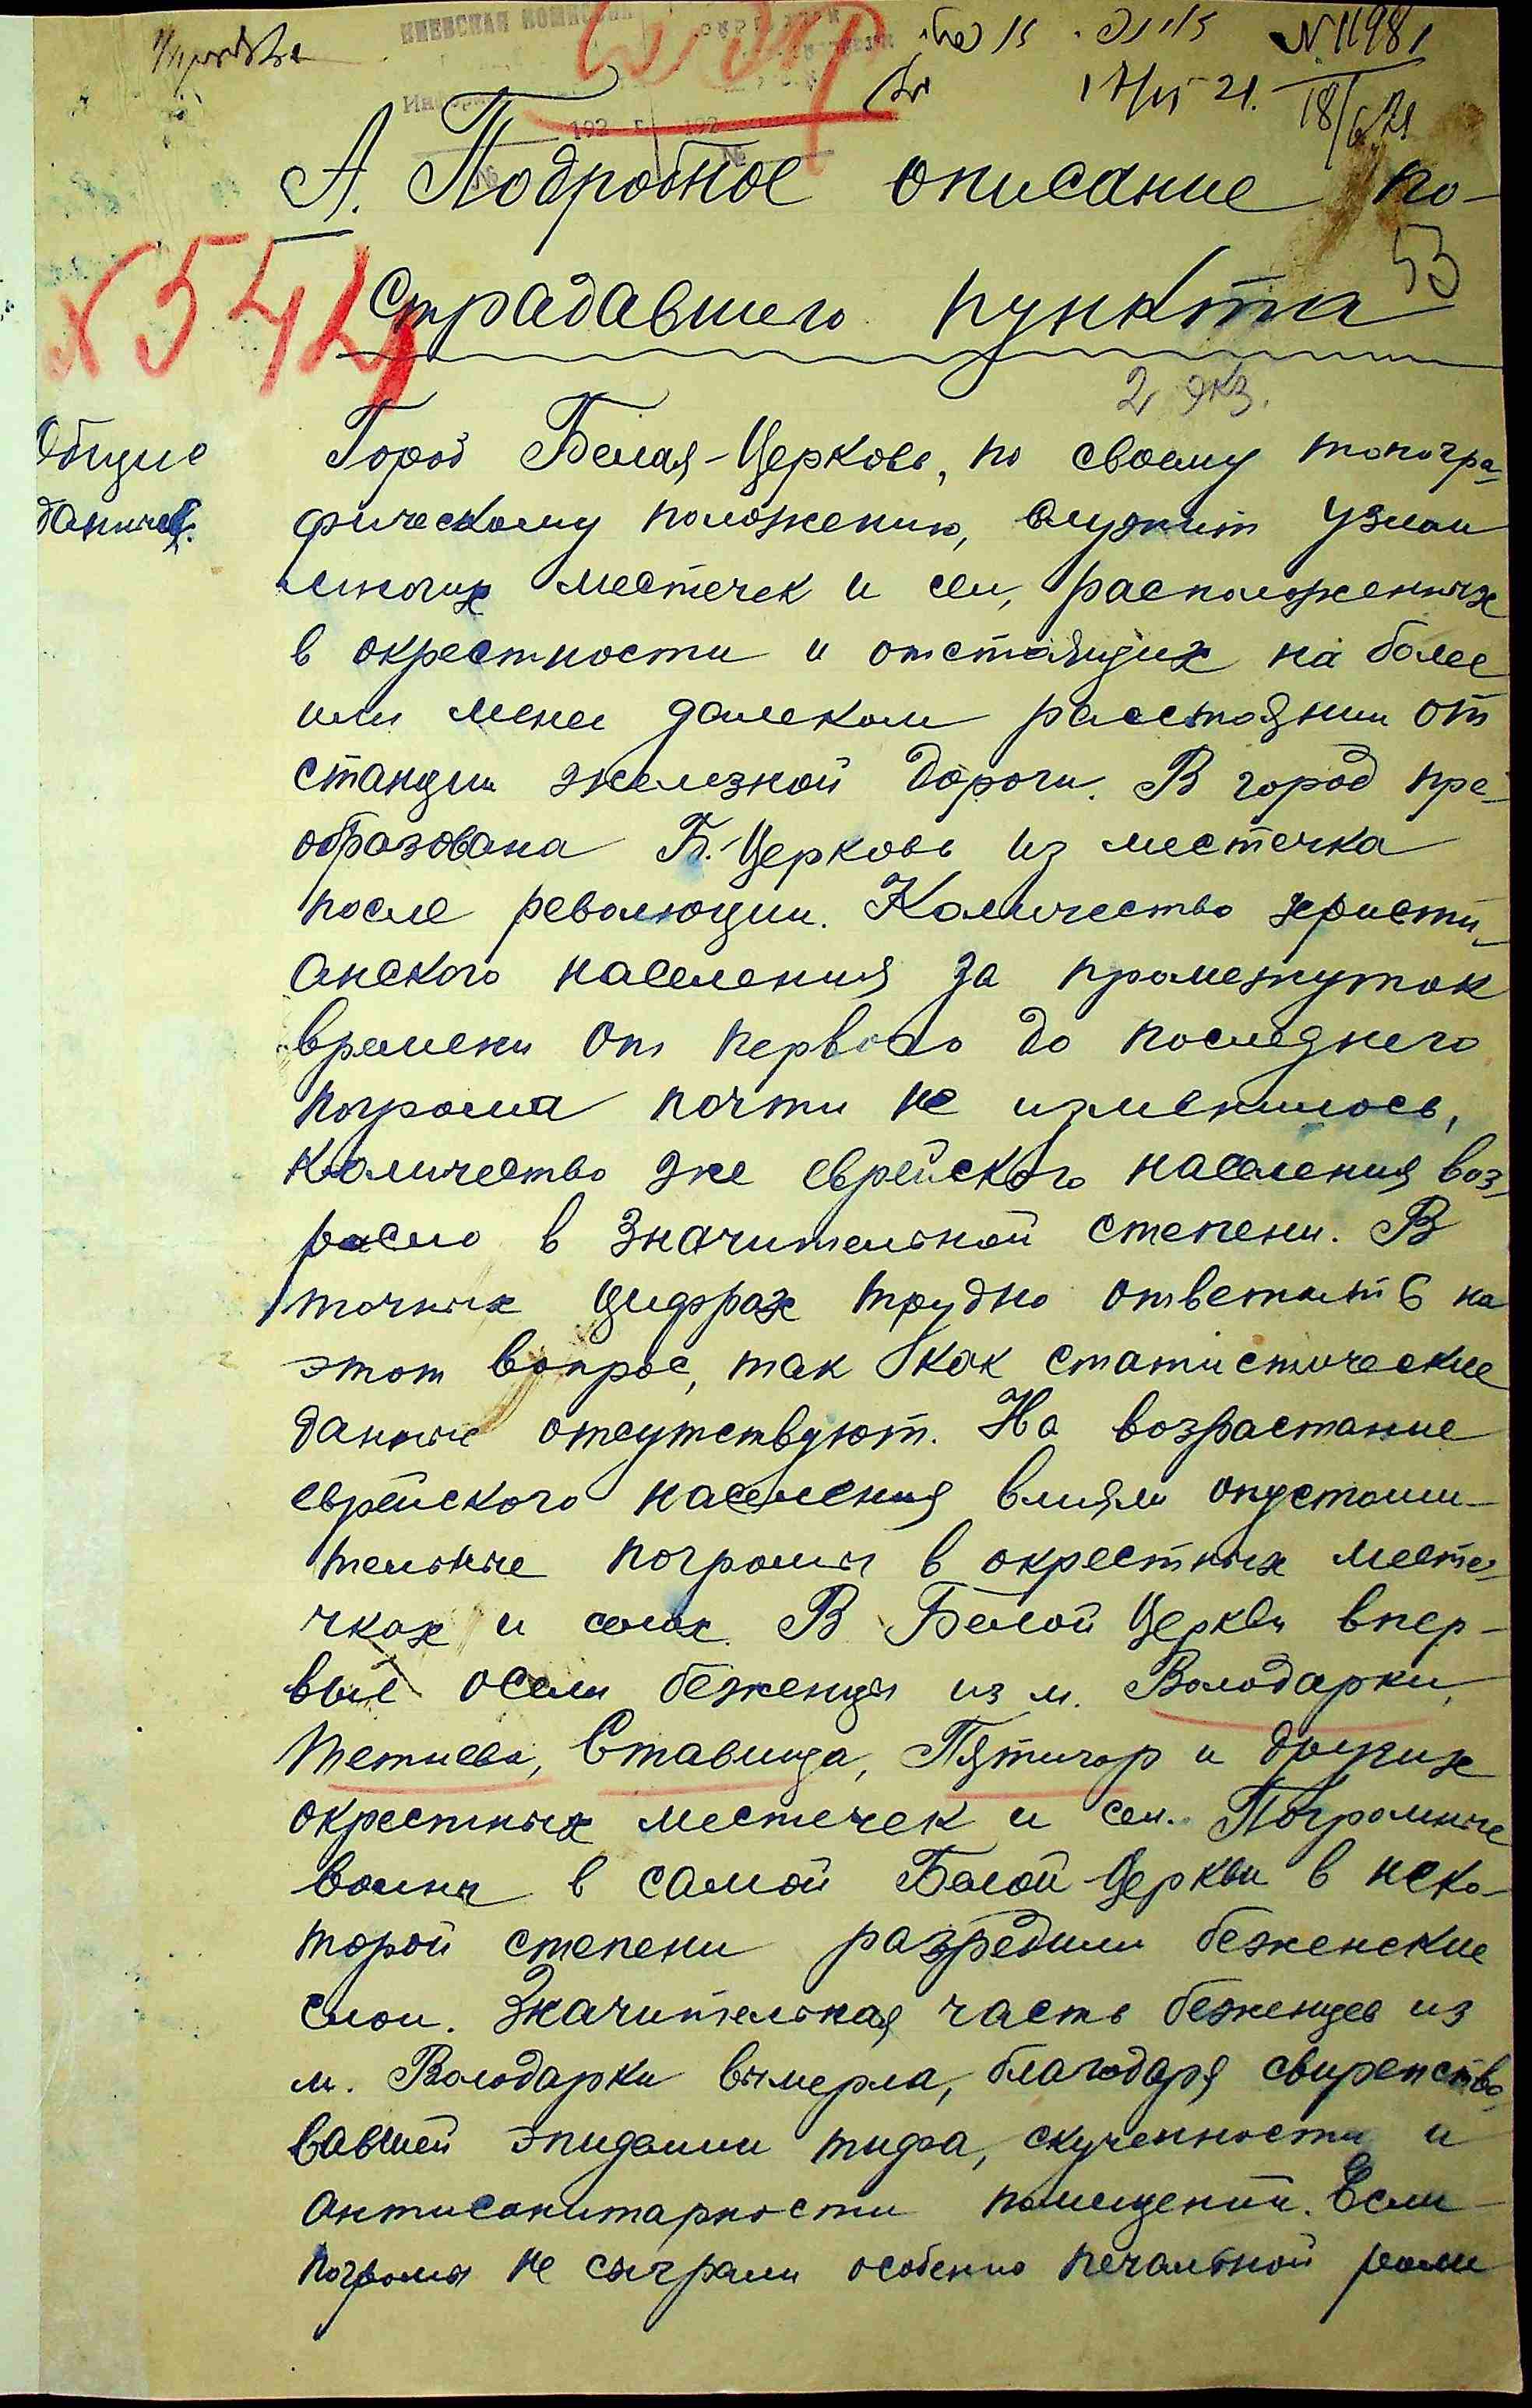 КИЕВСКАЯ
№ 11981
17/VI 21.
18/6 21
192 г. 192
№ №
А. Подробное описание по-
53
х 542
страдавшего пункта
2 экз.
Общие
данные.
Город Белая-Церковь, по своему топогра-
фическому положению, служит узлом
многих местечек и сел, расположенных
в окрестности и отстоящих на более
или менее далеком расстоянии от
станции железной дороги. В город пре-
образована Б.-Церковь из местечка
после революции. Количество христи-
анского населения за промежуток
времени от первого до последнего
погрома почти не изменилось,
количество же еврейского населения воз-
расло в значительной степени. В
точных цифрах трудно ответить на
этот вопрос, так как статистические
данные отсутствуют. На возрастание
еврейского населения влияли опустоши-
тельные погромы в окрестных месте-
чках и селах. В Белой Церкви впер-
вые осели беженцы из м. Володарки,
Тетиева, Ставища, Пятигор и других
окрестных местечек и сел. Погромные
волны в самой Белой-Церкви в неко-
торой степени разредили беженские
слои. Значительная часть беженцев из
м. Володарки вымерла, благодаря свирепство-
вавшей эпидемии тифа, скученности и
антисанитарности помещений. Если
погромы не сыграли особенно печальной роли